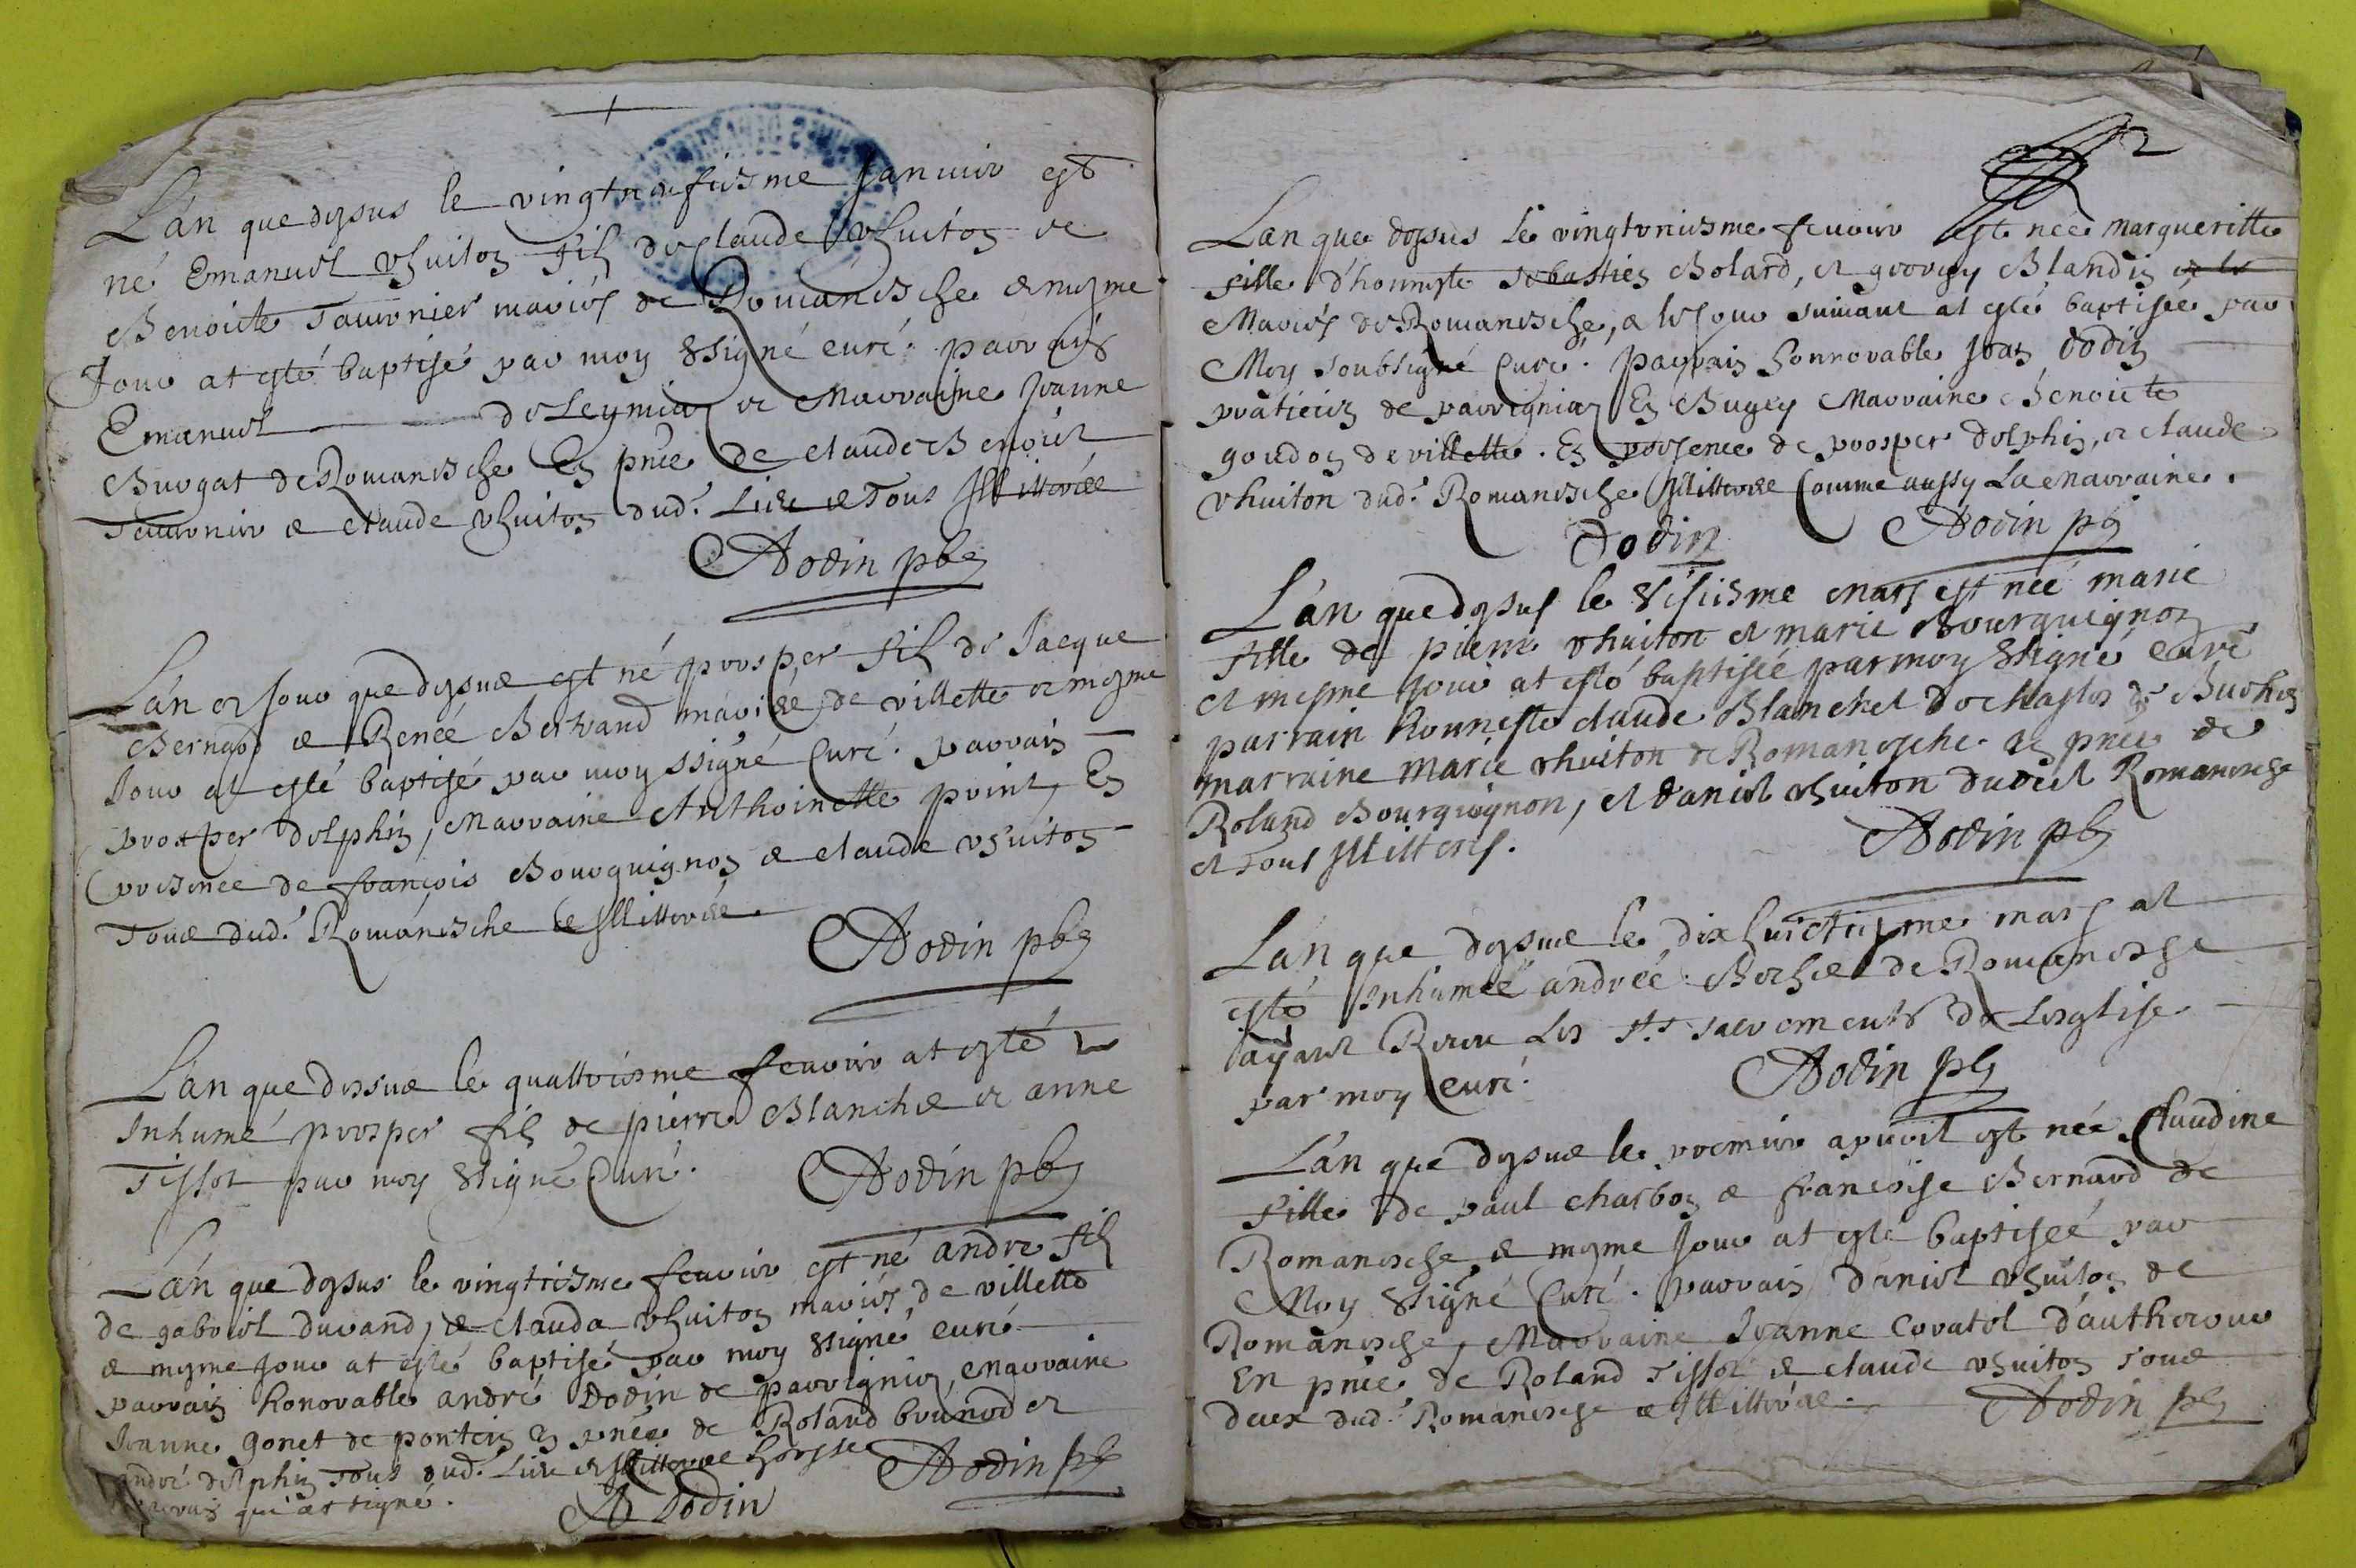 L'an que dessus le vingtneufiesme Januier est
né Emanuel Vhuiton fil de Claude Vhuiton et
Benoicte Tauronier mariés de Romanesche & mesme
Jour at esté baptisé par moy ssigné curé. parrain
Emanuel de Leymia et Marraine Jeanne
Burgat de Romanesche En pnce de claude Benoict
Tauronier & claude Vhuiton dud. Lieu & Tous Jllitterées
ADodin pbr
L'an et Jour que dessus est né prosper fil de Jacque
Bernard & Renée Bertrand mariés de villette et mesme
Jour at esté baptisé par moy ssigné Curé. parrain
prosper dolphin, Marraine Anthoinette point, En
presence de françois Bourguignon & claude vhuiton
Tous dud. Romanesche & Jllitterés.
ADodin pbr
L'an que dessus le quattriesme feurier at esté
Inhumé prosper fil de pierre Blanche et anne
Tissot par moy ssigné Curé.
ADodin pbr
L'an que dessus le vingtiesme feurier est né andre fil
de gabriel durand, & clauda vhuiton mariés de villette
& mesme Jour at esté baptisé par moy ssigné curé
parrain honorable andré Dodin de parrignier, Marraine
Jeanne gonet de pontein En pnce de Roland brunod et
andré dolphin Tous dud. Lieu et Jllitterés horssle
parrain qui at signé.
ADodin pbr
A Dodin
2
L'an que dessus le vingtoniesme feurier est née margueritte
fille d'honneste sebastien Bolard, et georgy Blandin
Mariés de Romanesche, & le Jour suiuant at esté baptisée par
Moy soubsigné Curé. parrain honnorable Jean Dodin
praticien de parrignier En Bugey Marraine Benoicte
goudon de villette. En presence de prosper dolphin, et claude
vhuiton dud. Romanesche Jllitterés Comme aussy La Marraine.
Dodin
ADodin pbr
L'an que dessus le sisiesme mars est née marie
fille de pierre vhuiton et marie Bourguignon
et mesme Jour at esté baptisée par moy ssigné curé
parrain honneste claude Blanchet de chaslos de Burhes
marraine Marie vhuiton de Romanesche. En pnce de
Roland Bourguignon, et daniel vhuiton dudict Romanesche
et Tous Jllitterés.
ADodin pbr
L'an que dessus le dixhuictiesme mars at
esté Inhumée andrée Berhes de Romanesche
ayant Receu Les Sts sacrements de Lesglise
par moy Curé.
ADodin pbr
L'an que dessus le premier apuril est née Claudine
fille de paul charbon & françoise Bernard de
Romanesche & mesme Jour at esté baptisée par
Moy ssigné Curé. parrain daniel vhuiton de
Romanesche, Marraine Jeanne Coratel d'auth
En pnce de Roland Tissot & claude vhuiton Tous
deux dud. Romanesche & Jllitterés.
ADodin pbr